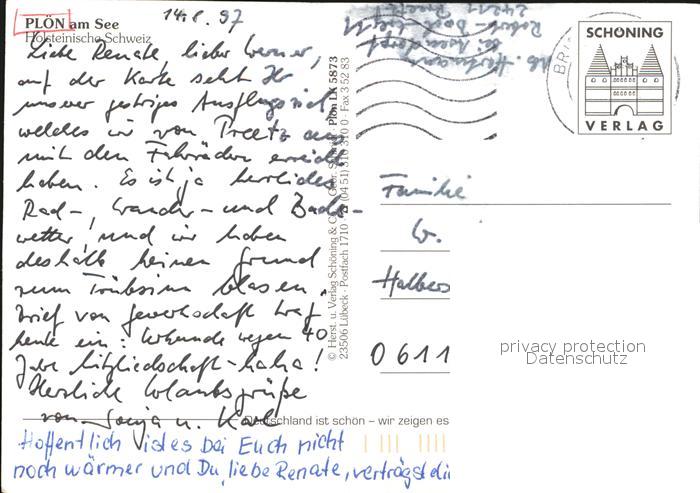 PLÖN am See
Holsteinische Schweiz
14.8.97
Liebe Renate, lieber Werner,
auf der Karte seht Ihr
unser gestriges Ausflugsziel
welches wir von Preetz aus
mit den Fahrrädern erreicht
haben. Es ist ja herrliches
Rad-, Wander- und Bade-
wetter, und wir haben
deshalb keinen Grund
zum Trübsinn blasen.
Brief von Gewerkschaft traf
heute ein: Urkunde wegen 40
Jahre Mitgliedschaft - haha!
Herzliche Urlaubsgrüße
von Sonja u. Karl
Hoffentlich ist es bei Euch nicht
noch wärmer und Du, liebe Renate, verträgst di
© Herst. u. Verlag Schöning & Co + Gebr. Schmidt · Plön LK 5873
23506 Lübeck · Postfach 1710 · (04 51) 3 10 31 0 · Fax 3 52 83
24211 Preetz
SCHÖNING
VERLAG
BR
Familie
W.
Halbers
0611
privacy protection
Datenschutz
Deutschland ist schön – wir zeigen es